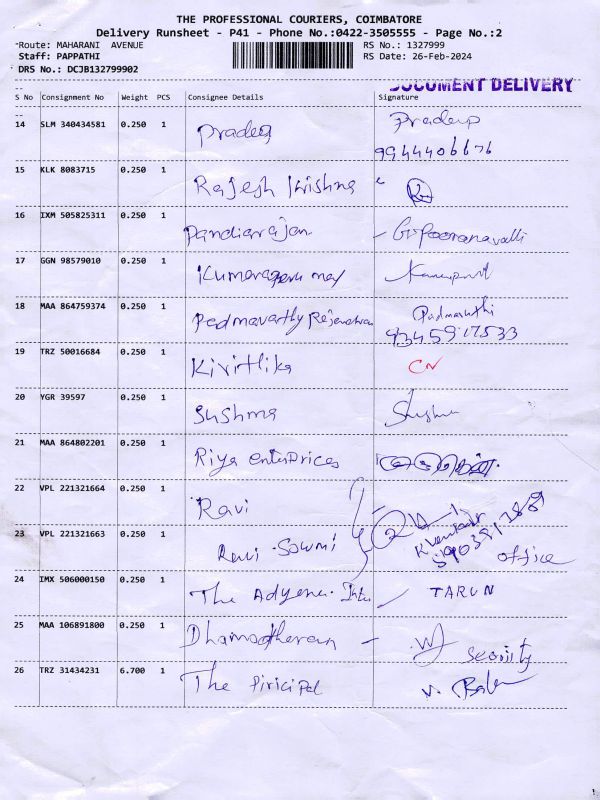 THE PROFESSIONAL COURIERS, COIMBATORE
Delivery Runsheet - P41 - Phone No.:0422-3505555 - Page No.:2
Route: MAHARANI AVENUE RS No.: 1327999
Staff: PAPPATHI RS Date: 26-Feb-2024
DRS No.: DCJB132799902
DOCUMENT DELIVERY
S No Consignment No Weight PCS Consignee Details Signature
14 SLM 340434581 0.250 1 Pradeep Pradeep
9944406676
15 KLK 8083715 0.250 1 Rajesh Krishna
16 IXM 505825311 0.250 1 Pandiarajan - G. Pooranavalli
17 GGN 98579010 0.250 1
18 MAA 864759374 0.250 1 Padmavarthy Padmavathi
9345917533
19 TRZ 50016684 0.250 1 Kirithika CN
20 YGR 39597 0.250 1 Sushma
21 MAA 864802201 0.250 1 Riya enterprices
22 VPL 221321664 0.250 1 Ravi
23 VPL 221321663 0.250 1 Ravi Sowmi office
24 IMX 506000150 0.250 1 The TARUN
25 MAA 106891800 0.250 1 - Security
26 TRZ 31434231 6.700 1 The Piricipal
1